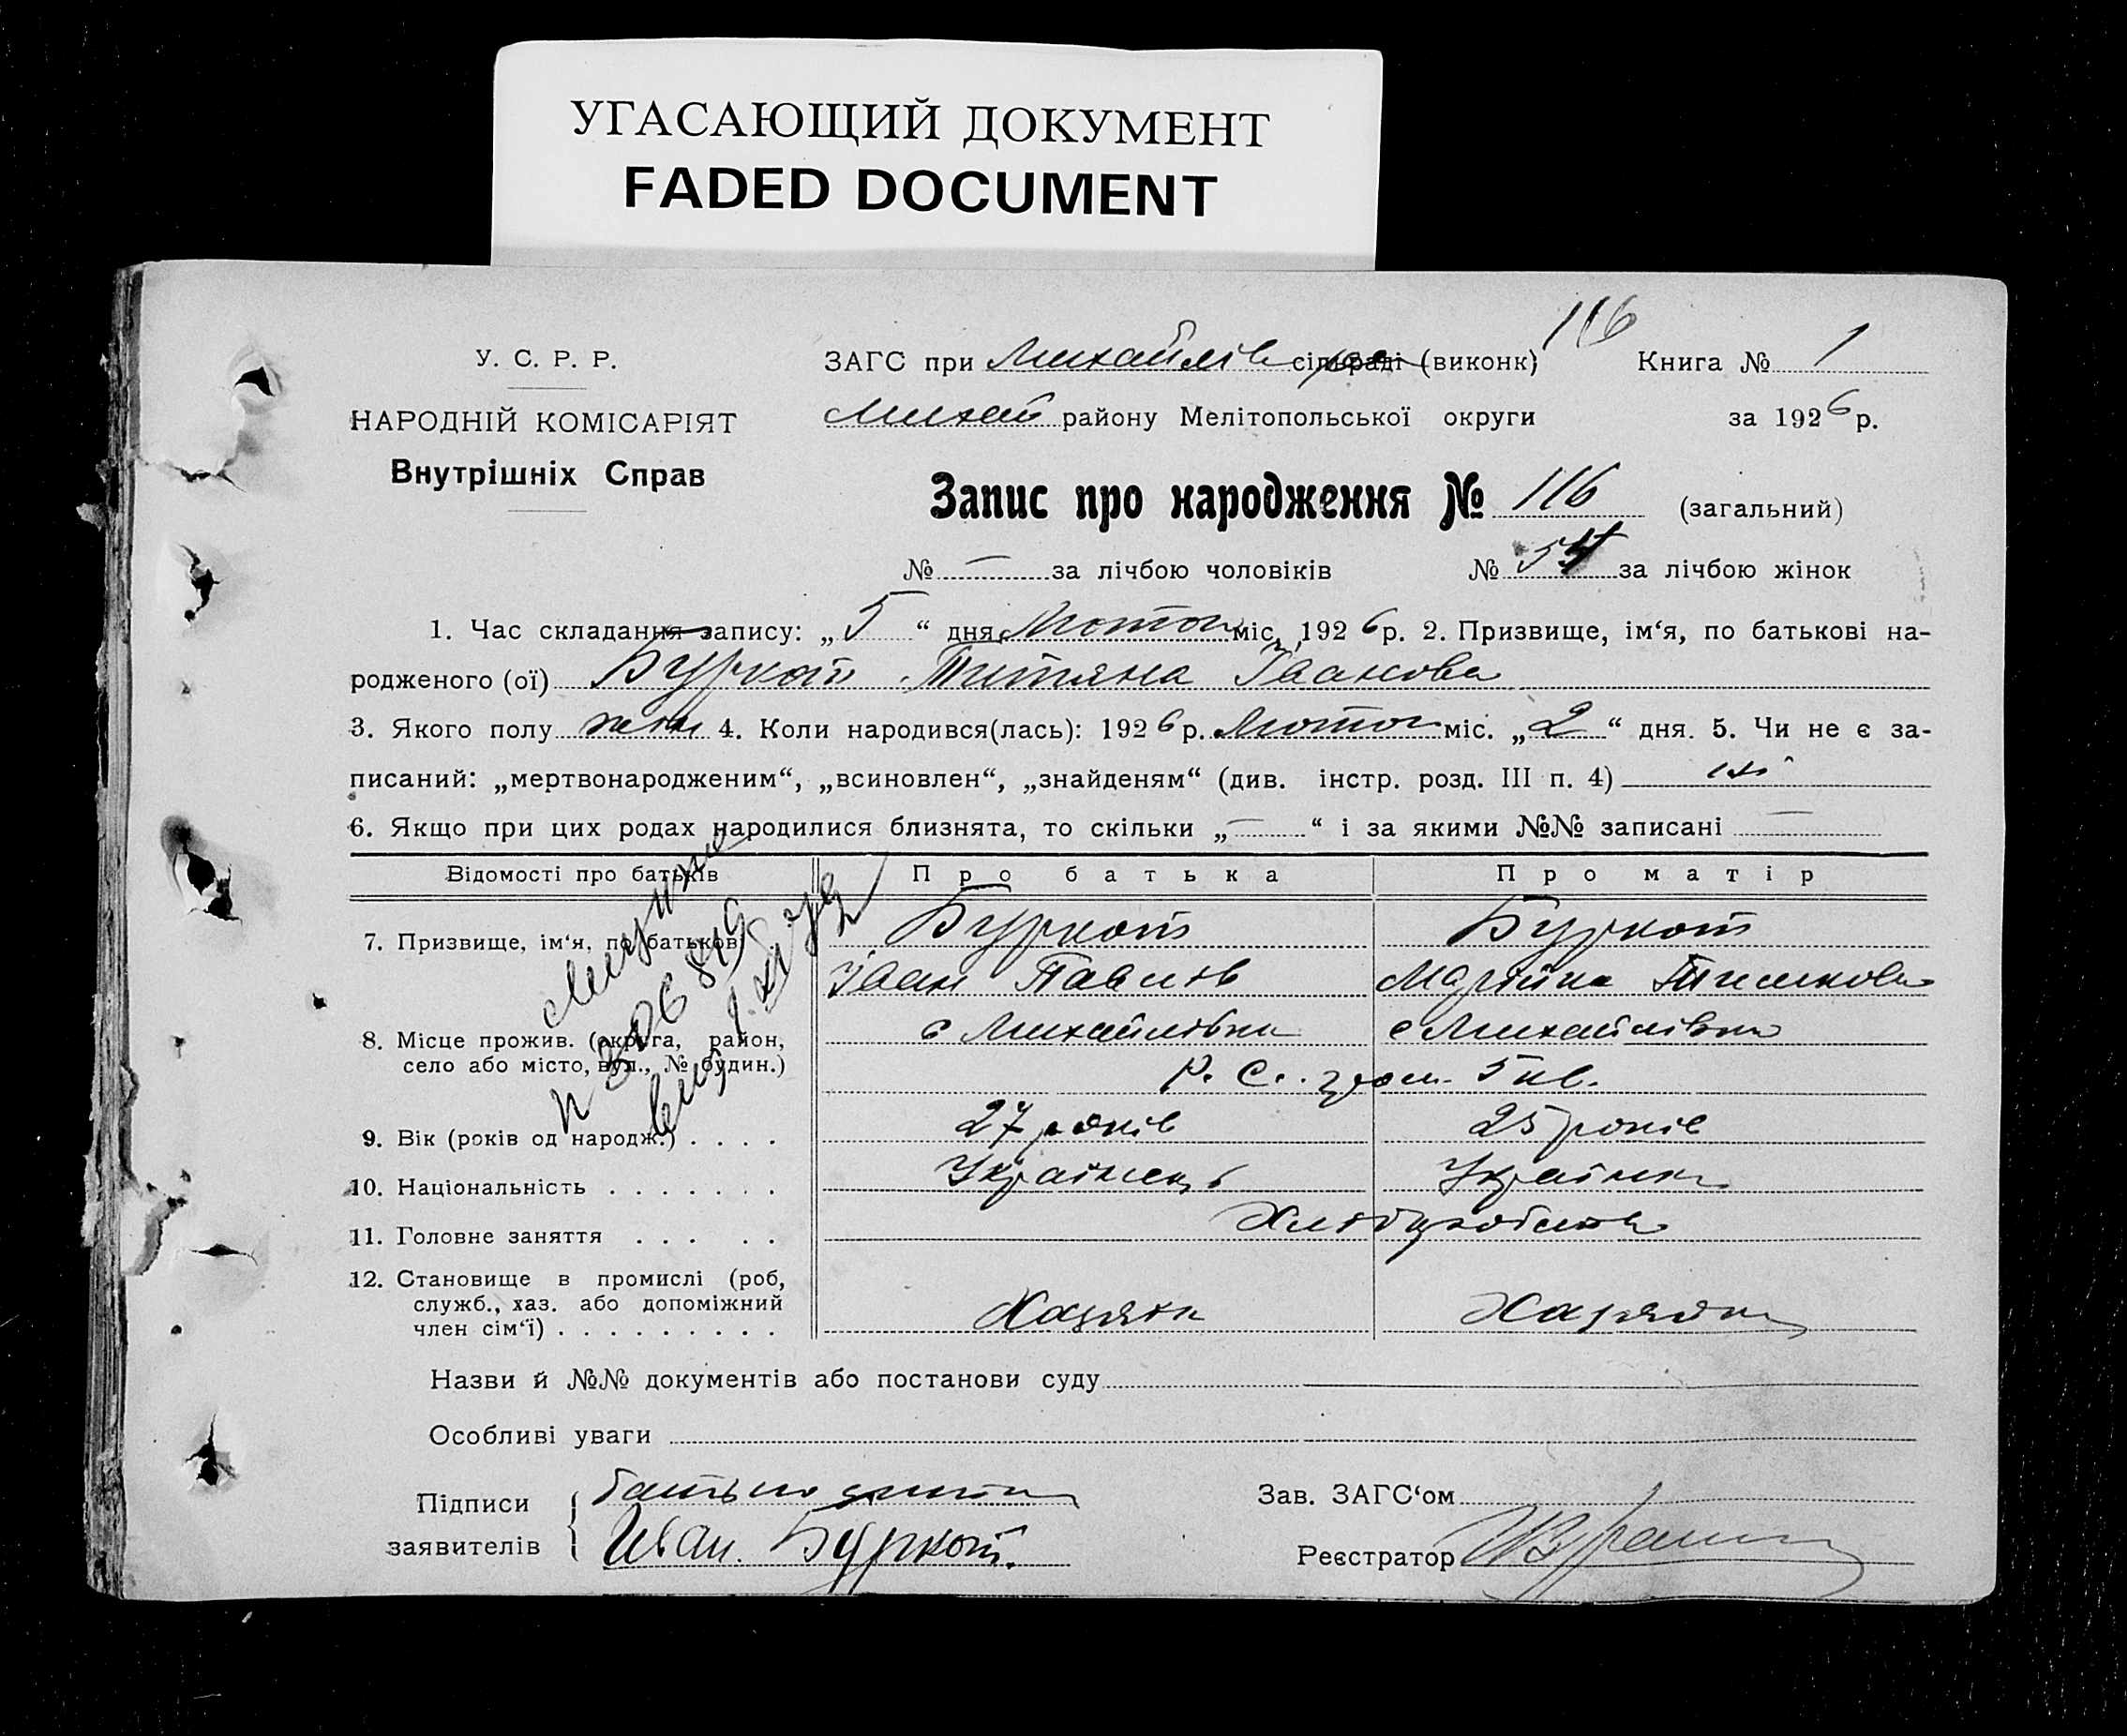 УГАСАЮЩИЙ ДОКУМЕНТ
FADED DOCUMENT
116
У. С. Р. Р.
ЗАГС при Михайлів сільраді (виконк)
Книга № 1
НАРОДНІЙ КОМІСАРІЯТ
Михай району Мелітопольської округи
за 1926 р.
Внутрішніх Справ
Запис про народження № 116 (загальний)
№ — за лічбою чоловіків № 54 за лічбою жінок
1. Час складання запису: „5“ дня Лютого міс. 1926 р. 2. Призвище, ім‘я, по батькові на-
родженого (ої) Буркот Титяна Іванова
3. Якого полу жін 4. Коли народився(лась): 1926 р. Лютого міс. „2“ дня. 5. Чи не є за-
писаний: „мертвонародженим“, „всиновлен“, „знайденям“ (див. інстр. розд. III п. 4)
6. Якщо при цих родах народилися близнята, то скільки „—“ і за якими №№ записані —
Відомості про батьків
Про батька
Про матір
7. Призвище, ім‘я, по батькові
Буркот
Буркот
Іван Павлів
Марійка Тимкова
8. Місце прожив. (округа, район,
село або місто, вул., № будин.)
с Михайлівка
с Михайлівка
Р. С. гром. 5 кв.
9. Вік (років од народж.) . . . .
27 років
25 років
10. Національність . . . . . . .
Українець
Українка
11. Головне заняття . . . . .
Хліборобство
12. Становище в промислі (роб,
служб., хаз. або допоміжний
член сім‘ї) . . . . . . . . .
Хазяїн
Хазяйка
Назви й №№ документів або постанови суду
Особливі уваги
Підписи
заявителів
батько
Иван. Буркот.
Зав. ЗАГС‘ом
Реєстратор